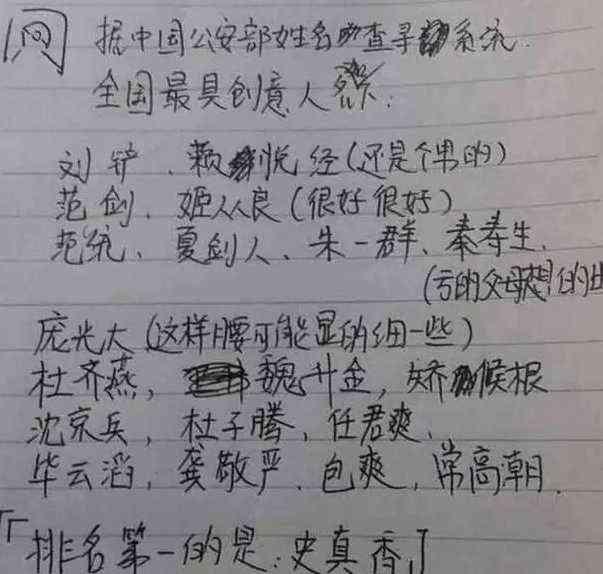 网 据中国公安部姓名查寻系统.
全国最具创意人名:
刘铲、赖悦经(还是个男的)
范剑、姬从良(很好很好)
范统、夏剑人、朱一群、秦寿生、
(亏的父母想的出
庞光大(这样腰可能显的细一些)
杜齐燕,魏升金,矫候根
沈京兵,杜子腾,任君爽、
毕云滔,龚敬严、包爽,常高潮.
「排名第一的是:史真香」